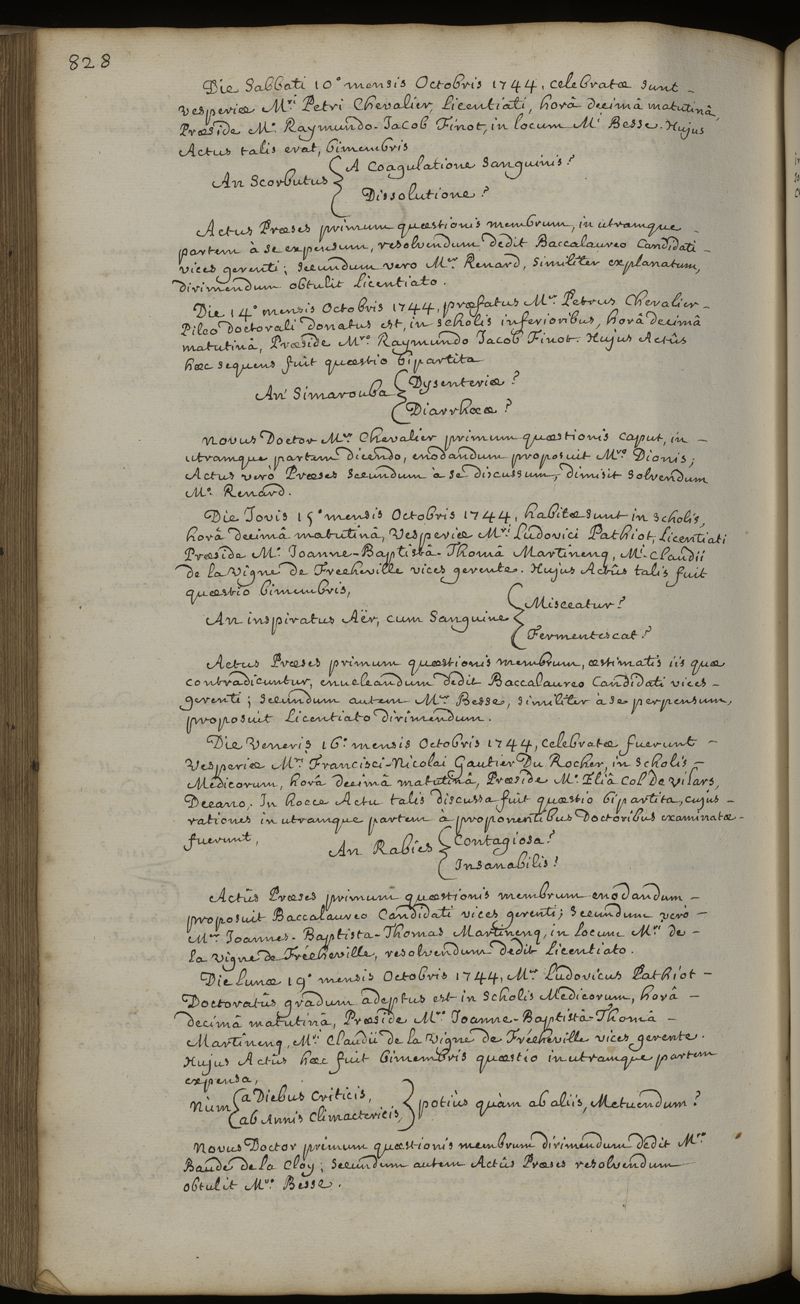 828
Die Sabbati 10° mensis Octobris 1744, celebratæ sunt
vesperiæ Mri Petri Chevalier, Licentiati, horâ decimâ matutinâ,
Præside Mo Raymundo-Jacob Finot, in locum Mi Besse. Hujus
Actus talis erat, bimembris
An Scorbutus { A Coagulatione Sanguinis?
Dissolutione?
Actus Præses primum quæstionis membrum, in utramque
partem à se expensum, resolvendum dedit Baccalaureo Candidati
vices gerenti; secundum vero Mer Renard, similiter explanatum,
dirimendum obtulit Licentiato.
Die 14° mensis Octobris 1744, præfatus Mer Petrus Chevalier
Pileo Doctorali donatus est, in Scholis inferioribus, horâ decimâ
matutinâ, Præside Mro Raymundo Jacob Finot. Hujus Actûs
hæc sequens fuit quæstio bipartita
An Simarouba { Dysenteriæ?
Diarrhææ?
Novus Doctor Mer Chevalier primum quæstionis caput, in
utramque partem dicendo, enodandum proposuit Mro Dionis;
Actus verò Præses secundum à se discussum, dimisit solvendum
Mo Renard.
Die Jovis 15° mensis Octobris 1744, habitæ sunt in scholis,
horâ decimâ matutinâ, Vesperiæ Mri Ludovici Pathiot, Licentiati
Præside Mo Joanne-Baptistâ-Thomâ Martinenq, Mi Claudii
de la Vigne de Frecheville vices gerente. Hujus Actûs talis fuit
quæstio bimembris,
An inspiratus Aër, cum Sanguine { Misceatur?
Fermentescat?
Actus Præses primum quæstionis membrum, æstimatis iis quæ
contradicuntur, enucleandum dedit Baccalaureo Candidati vices
gerenti; secundum autem Mer Besse, similiter à se perpensum,
proposuit Licentiato dirimendum.
Die Veneris 16° mensis Octobris 1744, celebratæ fuerunt
Vesperiæ Mri Francisci-Nicolai Gautier Du Rocher, in Scholis
Medicorum, horâ decimâ matutinâ, Præside Mo Eliâ Col De Vilars,
Decano. In hocce Actu talis discussa fuit quæstio bipartita, cujus
rationes in utramque partem à proponentibus Doctoribus examinatæ
fuerunt,
An Rabies { Contagiosa?
Insanabilis!
Actûs Præses primum quæstionis membrum enodandum
proposuit Baccalaureo Candidati vices gerenti; secundum verò
Mer Joannes-Baptista-Thomas Martinenq, in locum Mri de
la Vigne de Frécheville, resolvendum dedit Licentiato.
Die Lunæ 19° mensis Octobris 1744, Mer Ludovicus Pathiot
Doctoratûs gradum adeptus est in Scholis Medicorum, horâ
decimâ matutinâ, Præside Mro Joanne-Baptistâ-Thomâ
Martinenq, Mri Claudii de la Vigne de Frécheville vices gerente.
Hujus Actûs hæc fuit bimembris quæstio in utramque partem
expensa,
Nùm { a Diebus Criticis,
ab Annis Climactericis, } potiùs quàm ab aliis, Metuendum?
Novus Doctor primum quæstionis membrum dirimendum dedit Mro
Baude de la Cloy; secundum autem Actûs Præses resolvendum
obtulit Mro Besse.